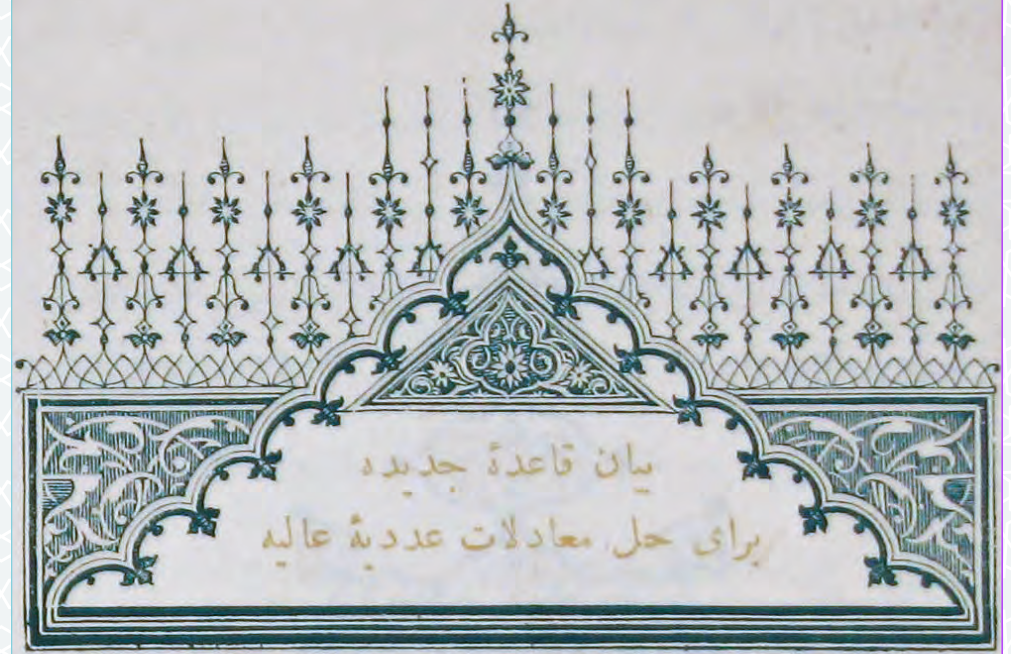 بيان قاعدۀ جديده
برای حل معادلات عدديۀ عاليه